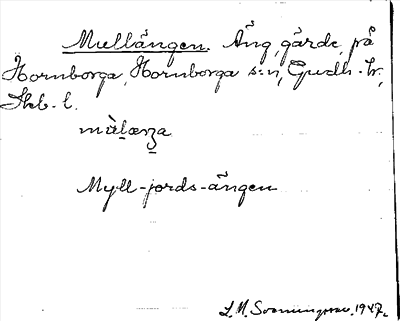 Mullängen. Äng, gärde, på
Hornborga, Hornborga s:n, Gudh. hr,
Skb. l.
mùḷæṇʒa
Myll-jords-ängen
1947.